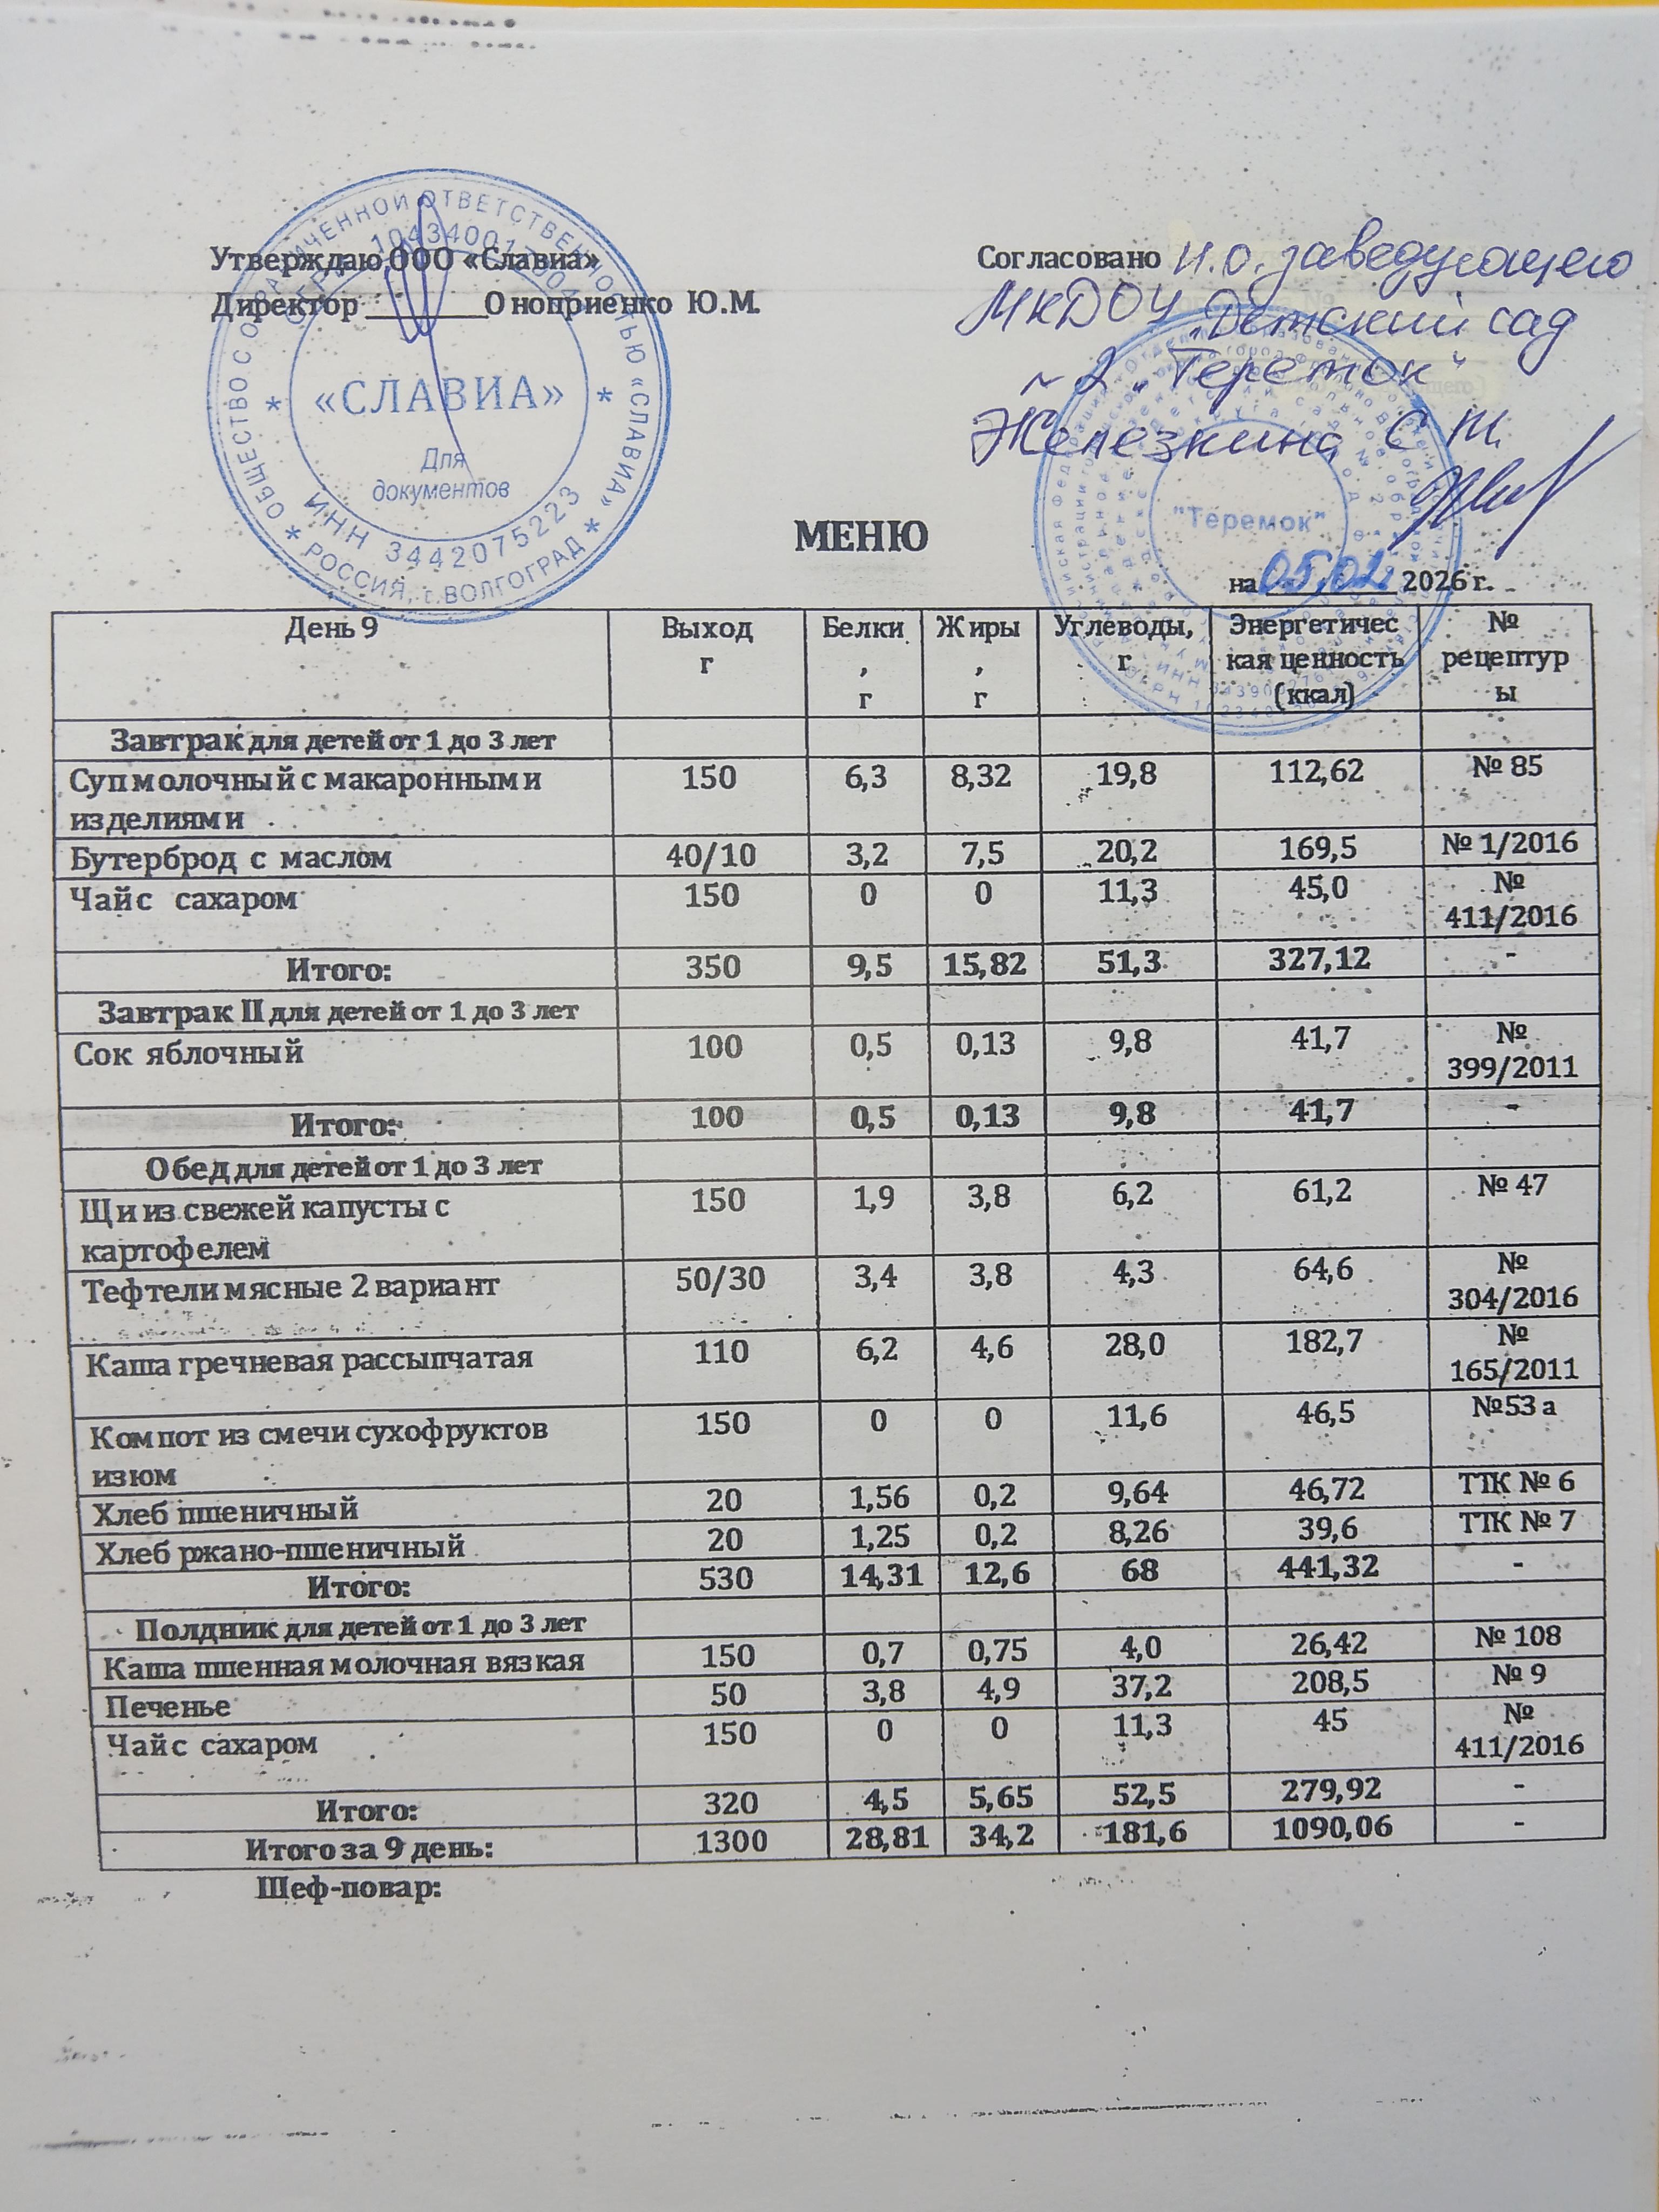 Утверждаю ООО «Славиа»
Директор ________ Оноприенко Ю.М.
ОБЩЕСТВО С ОГРАНИЧЕННОЙ ОТВЕТСТВЕННОСТЬЮ «СЛАВИА»
«СЛАВИА»
Для
документов
ИНН 3442075223
РОССИЯ, г. ВОЛГОГРАД
Согласовано И.о. заведующего
МКДОУ "Детский сад
№2 "Теремок"
Железкина С
"Теремок"
МЕНЮ
на 05.02. 2026 г.
День 9 Выход г Белки, г Жиры, г Углеводы, г Энергетическая ценность (ккал) № рецептуры
Завтрак для детей от 1 до 3 лет
Суп молочный с макаронными изделиями 150 6,3 8,32 19,8 112,62 № 85
Бутерброд с маслом 40/10 3,2 7,5 20,2 169,5 № 1/2016
Чай с сахаром 150 0 0 11,3 45,0 № 411/2016
Итого: 350 9,5 15,82 51,3 327,12 -
Завтрак II для детей от 1 до 3 лет
Сок яблочный 100 0,5 0,13 9,8 41,7 № 399/2011
Итого: 100 0,5 0,13 9,8 41,7 -
Обед для детей от 1 до 3 лет
Щи из свежей капусты с картофелем 150 1,9 3,8 6,2 61,2 № 47
Тефтели мясные 2 вариант 50/30 3,4 3,8 4,3 64,6 № 304/2016
Каша гречневая рассыпчатая 110 6,2 4,6 28,0 182,7 № 165/2011
Компот из смечи сухофруктов изюм 150 0 0 11,6 46,5 №53 а
Хлеб пшеничный 20 1,56 0,2 9,64 46,72 ТТК № 6
Хлеб ржано-пшеничный 20 1,25 0,2 8,26 39,6 ТТК № 7
Итого: 530 14,31 12,6 68 441,32 -
Полдник для детей от 1 до 3 лет
Каша пшенная молочная вязкая 150 0,7 0,75 4,0 26,42 № 108
Печенье 50 3,8 4,9 37,2 208,5 № 9
Чай с сахаром 150 0 0 11,3 45 № 411/2016
Итого: 320 4,5 5,65 52,5 279,92 -
Итого за 9 день: 1300 28,81 34,2 181,6 1090,06 -
Шеф-повар: